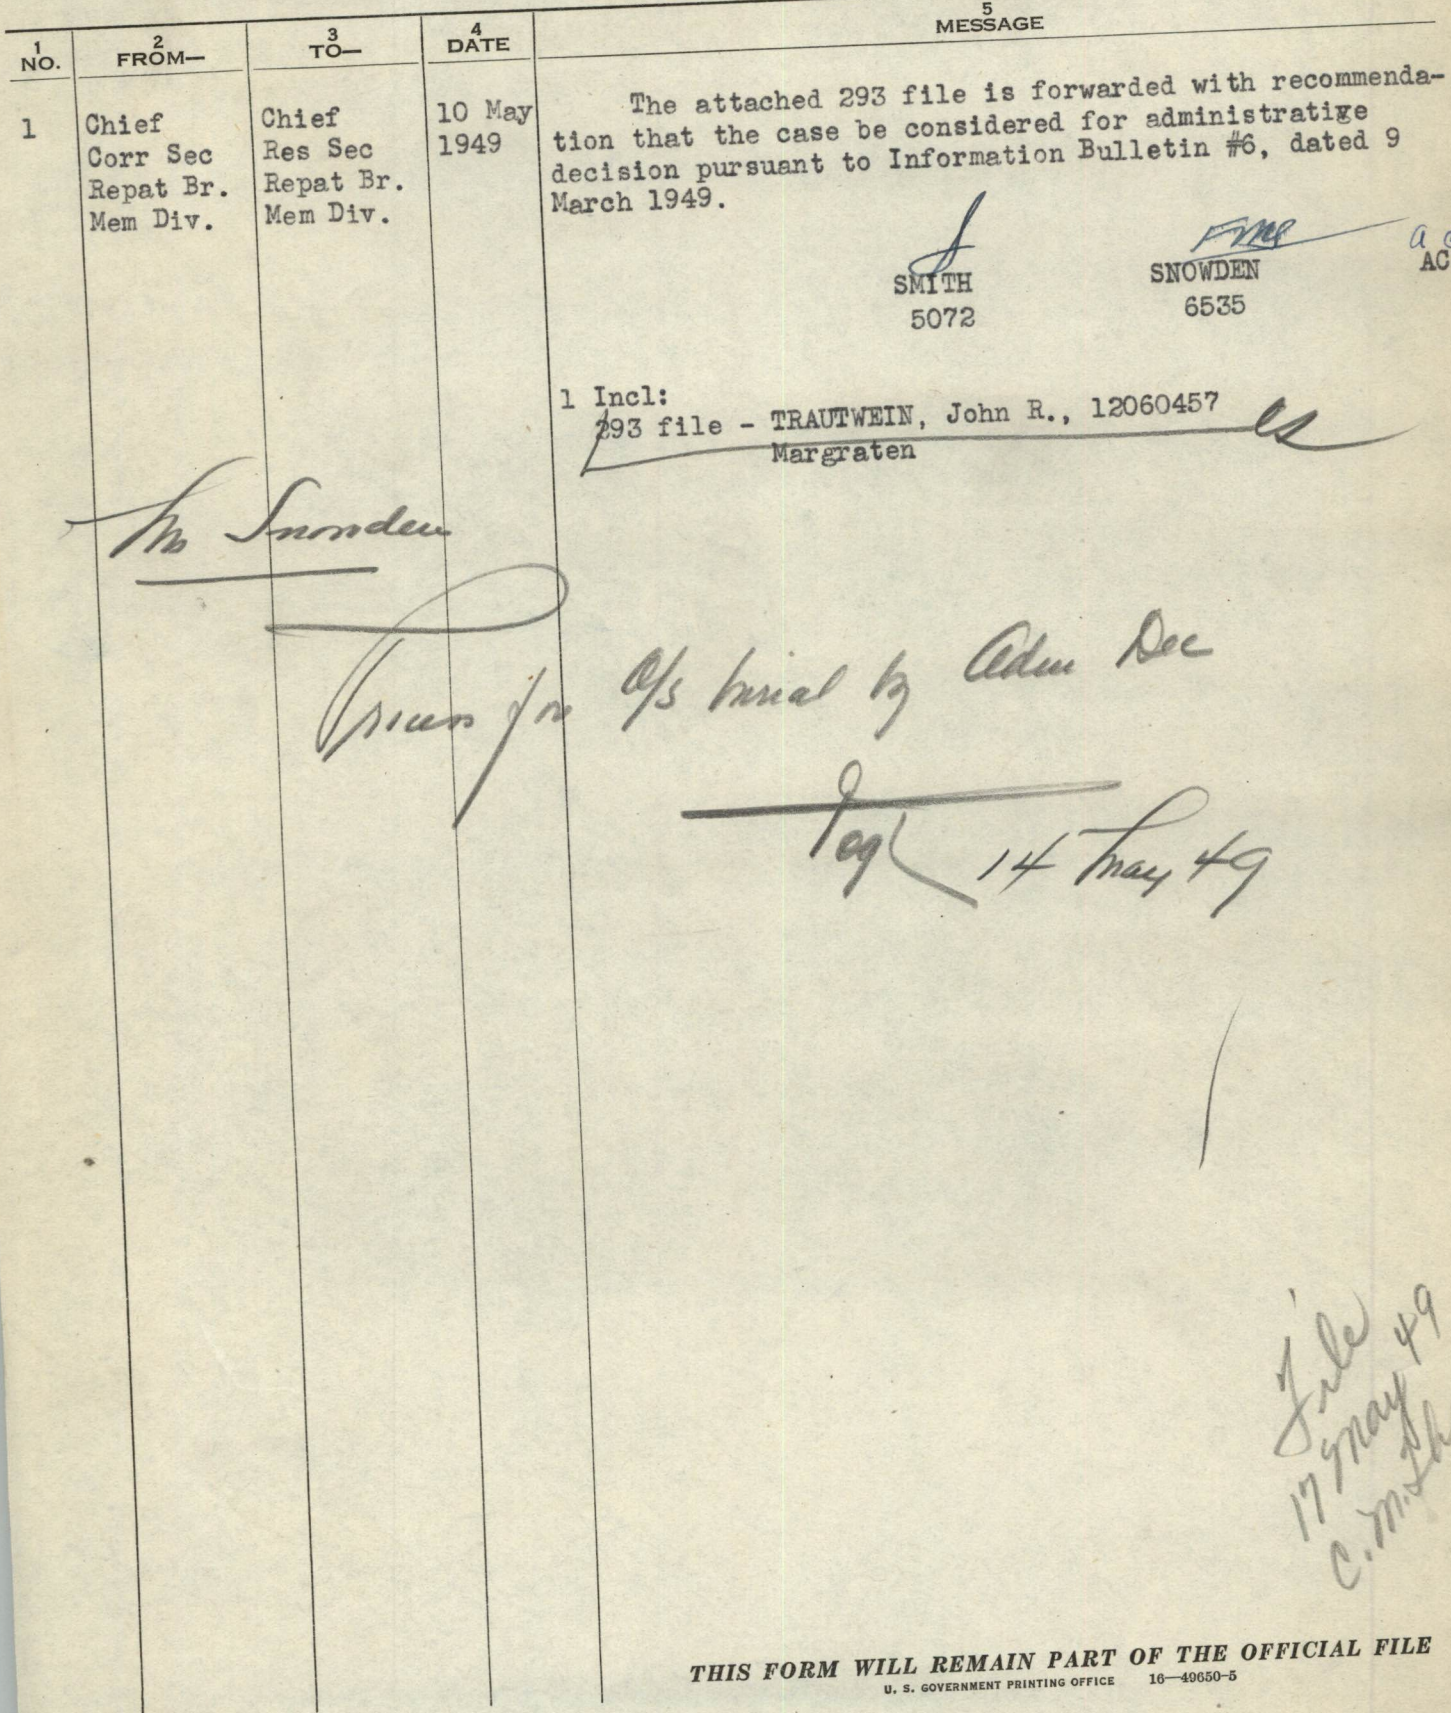 1 NO.
2 FROM—
3 TO—
4 DATE
5 MESSAGE
1
Chief
Corr Sec
Repat Br.
Mem Div.
Chief
Res Sec
Repat Br.
Mem Div.
10 May
1949
The attached 293 file is forwarded with recommenda-
tion that the case be considered for administratige
decision pursuant to Information Bulletin #6, dated 9
March 1949.
SMITH
5072
SNOWDEN
6535
AC
1 Incl:
293 file - TRAUTWEIN, John R., 12060457
Margraten
Mr Snowden
for O/S burial by Adm Dec
14 May 49
File
17 May 49
C. M.
THIS FORM WILL REMAIN PART OF THE OFFICIAL FILE
U. S. GOVERNMENT PRINTING OFFICE 16—49650-5